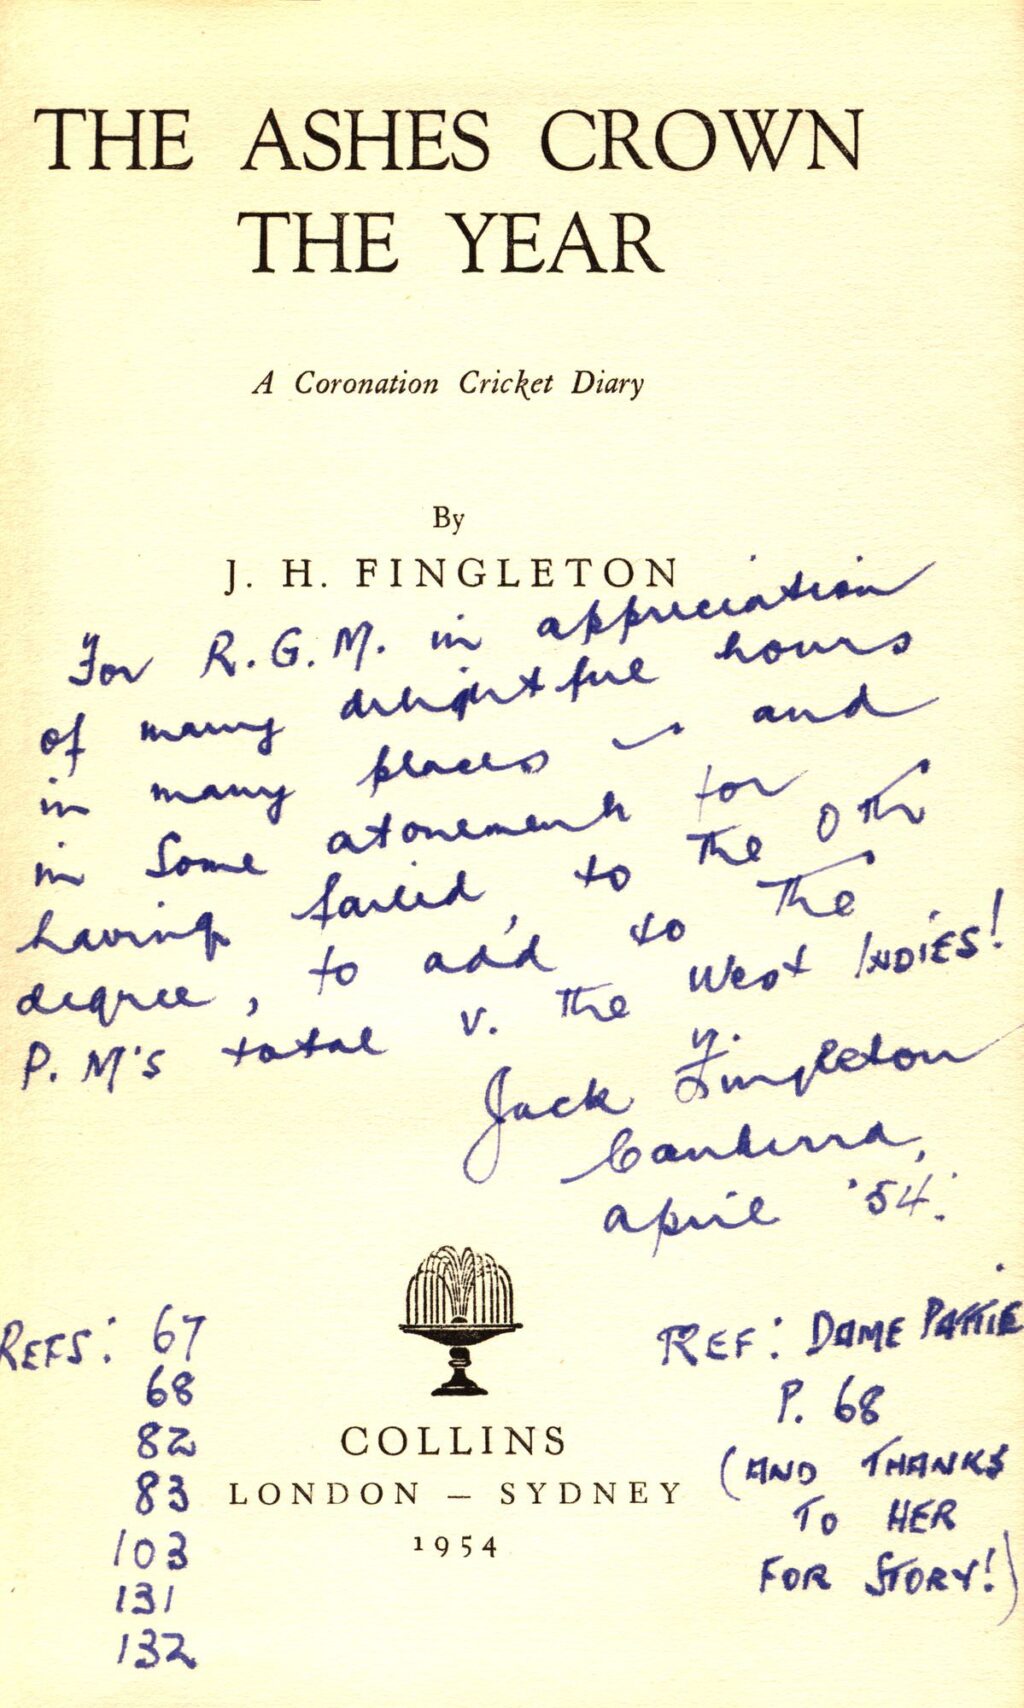 THE ASHES CROWN
THE YEAR
A Coronation Cricket Diary
By
J. H. FINGLETON
For R.G.M. in appreciation
of many delightful hours
in many places — and
in some atonement for
having failed, to the 0th
degree, to add to the
P.M's total v. the West INDIES!
Jack Fingleton
Canberra,
April '54.
REFS: 67
68
82
83
103
131
132
REF: DAME PATTIE
P. 68
(AND THANKS
TO HER
FOR STORY!)
COLLINS
LONDON – SYDNEY
1954